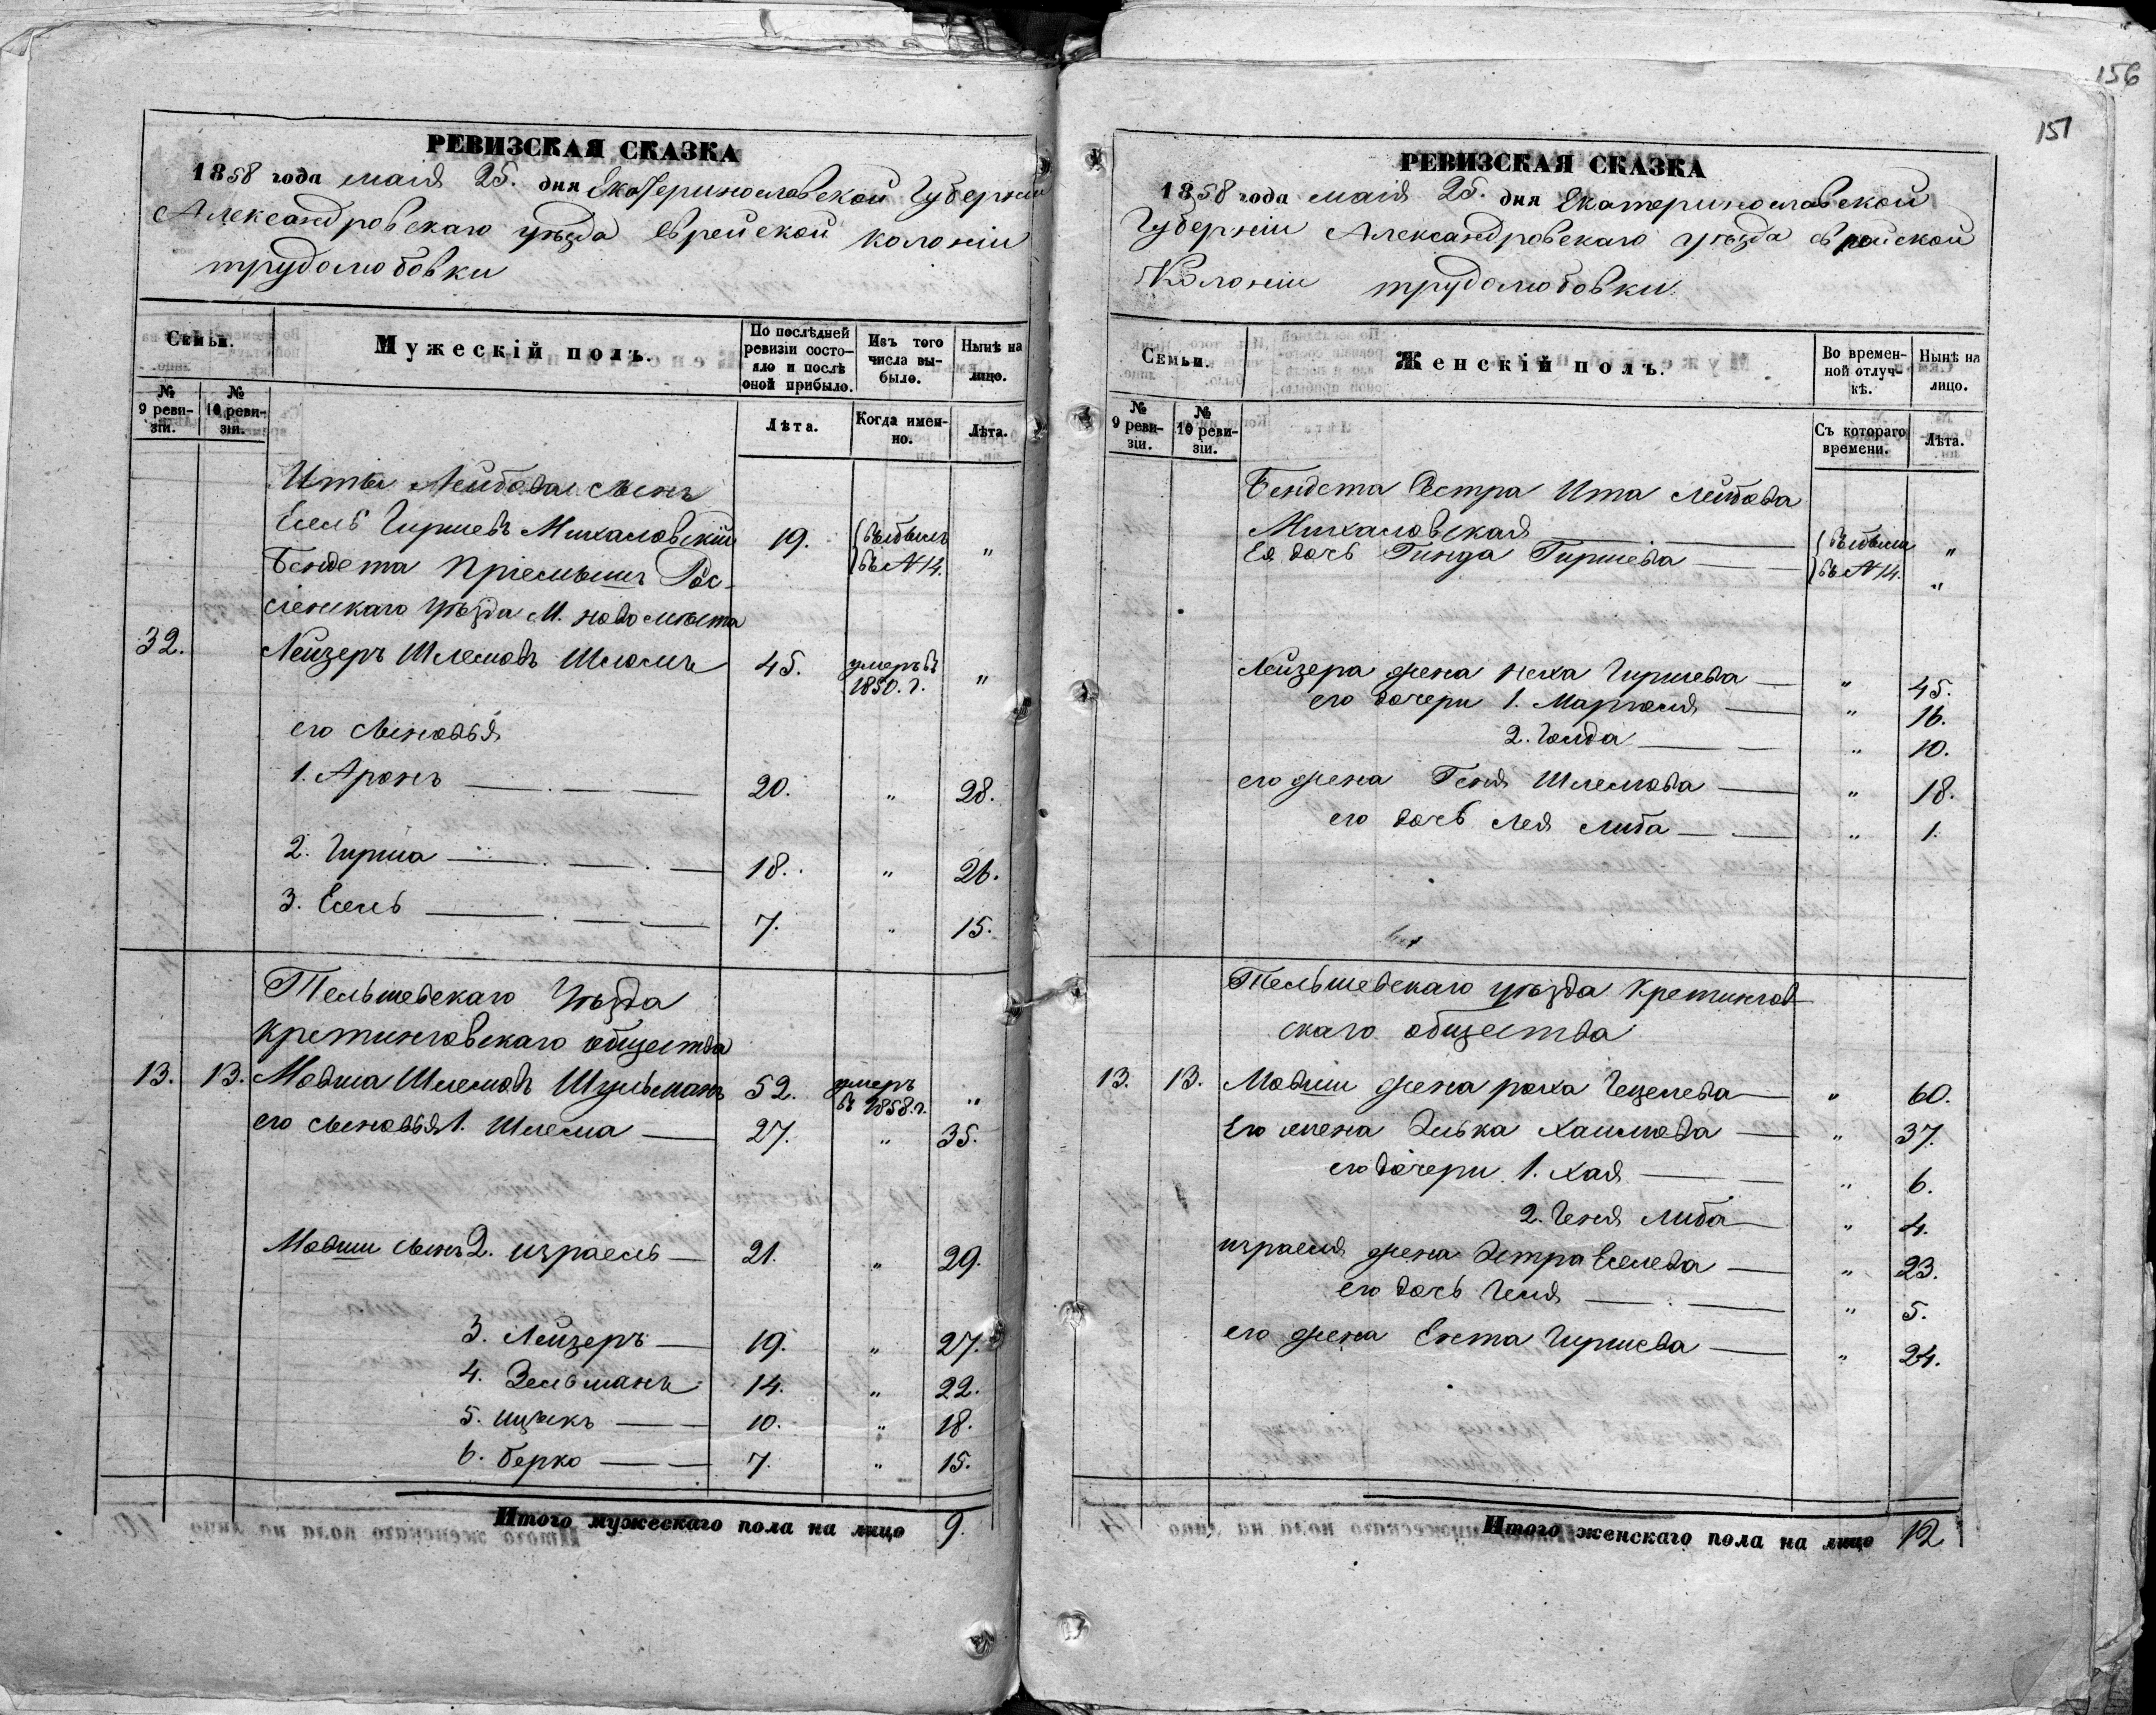 156
157
РЕВИЗСКАЯ СКАЗКА
1858 года мая 25. дня Екатеринославской Губерніи
Александровскаго уѣзда еврейской колоніи
трудолюбовки
Семьи.
Мужескій полъ.
По послѣдней ревизіи состояло и послѣ оной прибыло.
Изъ того числа выбыло.
Нынѣ на лицо.
№ 9 ревизіи.
№ 10 ревизіи.
Лѣта.
Когда именно.
Лѣта.
Иты Лейбова сынъ
Есель Гиршевъ Михаловскій 19. выбылъ въ № 14. "
Бендета Пріемышъ Рос-
сіенскаго уѣзда М. новомѣста
32. Лейзеръ Шлемовъ 45. умеръ въ 1850. г. "
его сыновья
1. Аронъ 20. " 28.
2. Гирша 18. " 26.
3. Есель 7. " 15.
Тельшевскаго Уѣзда
кретинговскаго общества
13. 13. Мовша Шлемовъ Шульманъ 52. умеръ въ 1858. г. "
его сыновья 1. Шлема 27. " 35.
Мовши сынъ 2. израель 21. " 29.
3. Лейзеръ 19. " 27.
4. Зельманъ 14. " 22.
5. ицыкъ 10. " 18.
6. берко 7. " 15.
Итого мужескаго пола на лицо 9.
РЕВИЗСКАЯ СКАЗКА
1858 года мая 25. дня Екатеринославской
Губерніи Александровскаго уѣзда еврейской
Колоніи трудолюбовки
Семьи.
Женскій полъ.
Во временной отлучкѣ.
Нынѣ на лицо.
№ 9 ревизіи.
№ 10 ревизіи.
Съ котораго времени.
Лѣта.
Бендета Сестра Ита Лейбова
Михаловская выбыли "
Ея дочь Гинда Гиршева въ № 14. "
Лейзера жена Неха Гиршева " 45.
его дочери 1. Марьяся " 16.
2. Голда " 10.
его жена Геня Шлемова " 18.
его дочь Лея Либа " 1.
Тельшевскаго уѣзда Кретингов-
скаго общества
13. 13. Мовши жена роха Гецелева " 60.
Его жена Элька Хаимова " 37.
его дочери 1. Хая " 6.
2. Геня Либа " 4.
израеля жена Эстра Еселева " 23.
его дочь Геня " 5.
его жена Ента Гиршева " 24.
Итого женскаго пола на лицо 12